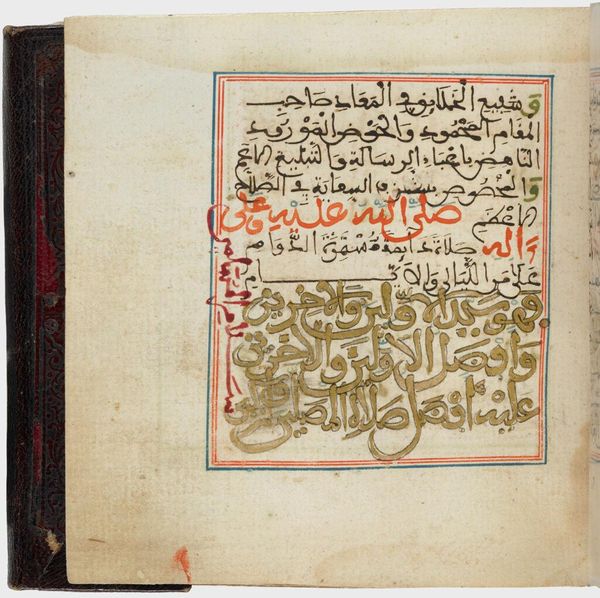 وشفيع الخلائق في المعاد صاحب
المقام المحمود والحوض المورود
الناهض باعباء الرسالة والتبليغ الاعم
والمخصوص بشرف السعاية في الصلاح
الاعظم صلى الله عليه وعلى
ءاله صلاة دايمة مستمرة الدوام
على مر الليالي والايام
فهو سيد الاولين والاخرين
وافضل الاولين والاخرين
عليه افضل صلاة المصلين